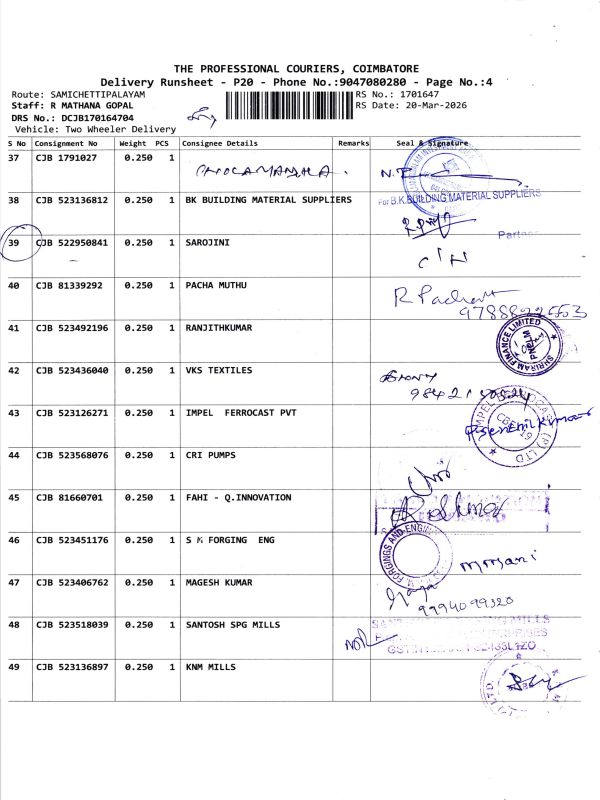 THE PROFESSIONAL COURIERS, COIMBATORE
Delivery Runsheet - P20 - Phone No.:9047080280 - Page No.:4
Route: SAMICHETTIPALAYAM RS No.: 1701647
Staff: R MATHANA GOPAL RS Date: 20-Mar-2026
DRS No.: DCJB170164704
Vehicle: Two Wheeler Delivery
S No Consignment No Weight PCS Consignee Details Remarks Seal & Signature
37 CJB 1791027 0.250 1
38 CJB 523136812 0.250 1 BK BUILDING MATERIAL SUPPLIERS
For B.K.BUILDING MATERIAL SUPPLIERS
Partner
39 CJB 522950841 0.250 1 SAROJINI
40 CJB 81339292 0.250 1 PACHA MUTHU
41 CJB 523492196 0.250 1 RANJITHKUMAR
SHRIRAM FINANCE LIMITED
42 CJB 523436040 0.250 1 VKS TEXTILES
43 CJB 523126271 0.250 1 IMPEL FERROCAST PVT
44 CJB 523568076 0.250 1 CRI PUMPS
45 CJB 81660701 0.250 1 FAHI - Q.INNOVATION
46 CJB 523451176 0.250 1 S M FORGING ENG
47 CJB 523406762 0.250 1 MAGESH KUMAR
9994099320
48 CJB 523518039 0.250 1 SANTOSH SPG MILLS
49 CJB 523136897 0.250 1 KNM MILLS